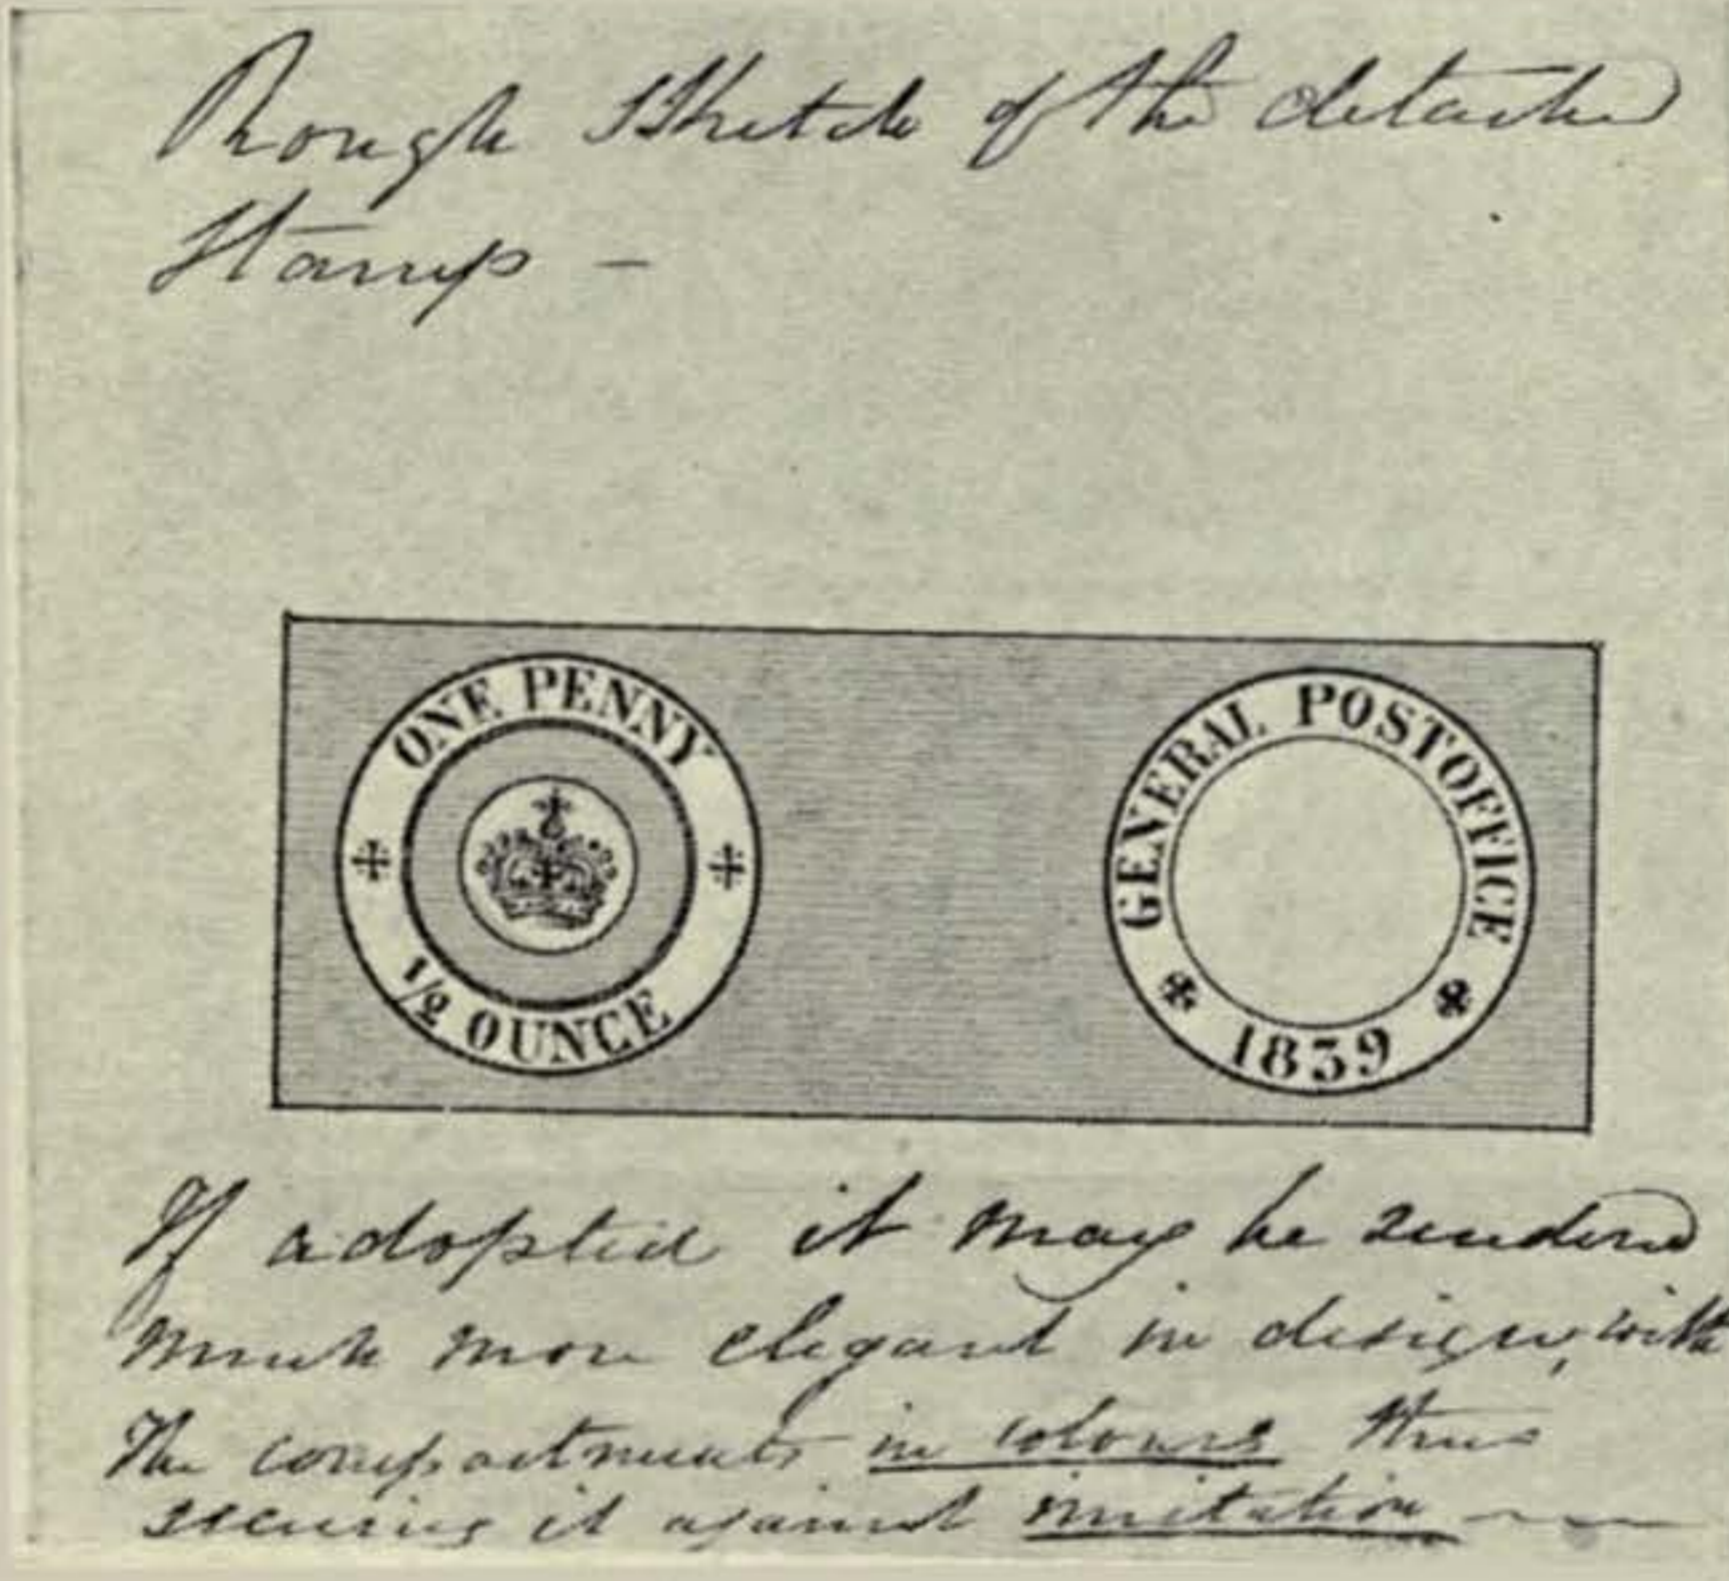 Rough Sketch of the detached
Stamp –
ONE PENNY
1/2 OUNCE
GENERAL POSTOFFICE
1839
If adopted it may be rendered
much more elegant in design, with
the compartments in colours thus
securing it against imitation